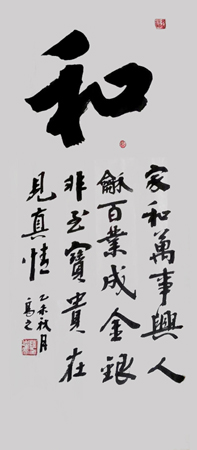 和
家和萬事興人
龢百業成金銀
非至寶貴在
見真情
乙未秋月